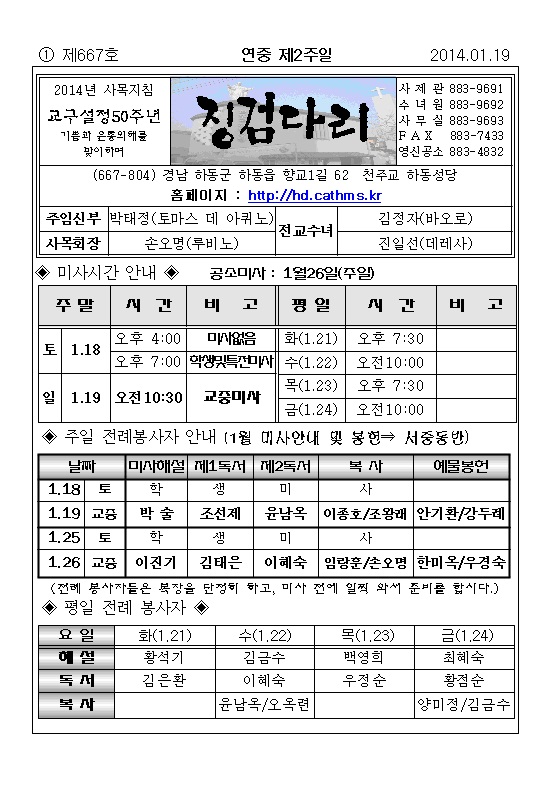 ① 제667호 연중 제2주일 2014.01.19
2014년 사목지침
교구설정50주년
기쁨과 은총의해를
맞이하며
징검다리
사 제 관 883-9691
수 녀 원 883-9692
사 무 실 883-9693
F A X 883-7433
영신공소 883-4832
(667-804) 경남 하동군 하동읍 향교1길 62 천주교 하동성당
홈페이지 : http://hd.cathms.kr
주임신부 박태정(토마스 데 아퀴노) 전교수녀 김정자(바오로)
사목회장 손오명(루비노) 진일선(데레사)
◈ 미사시간 안내 ◈ 공소미사 : 1월26일(주일)
주 말 시 간 비 고 평 일 시 간 비 고
토 1.18 오후 4:00 미사없음 화(1.21) 오후 7:30
오후 7:00 학생및특전미사 수(1.22) 오전10:00
일 1.19 오전10:30 교중미사 목(1.23) 오후 7:30
금(1.24) 오전10:00
◈ 주일 전례봉사자 안내 (1월 미사안내 및 봉헌⇒ 서중동반)
날짜 미사해설 제1독서 제2독서 복 사 예물봉헌
1.18 토 학 생 미 사
1.19 교중 박 술 조선제 윤남옥 이종호/조왕래 안기환/강두례
1.25 토 학 생 미 사
1.26 교중 이진기 김태은 이혜숙 임랑훈/손오명 한미옥/우경숙
(전례 봉사자들은 복장을 단정히 하고, 미사 전에 일찍 와서 준비를 합시다.)
◈ 평일 전례 봉사자 ◈
요 일 화(1.21) 수(1.22) 목(1.23) 금(1.24)
해 설 황석기 김금수 백영희 최혜숙
독 서 김은환 이혜숙 우정순 황점순
복 사 윤남옥/오옥련 양미정/김금수